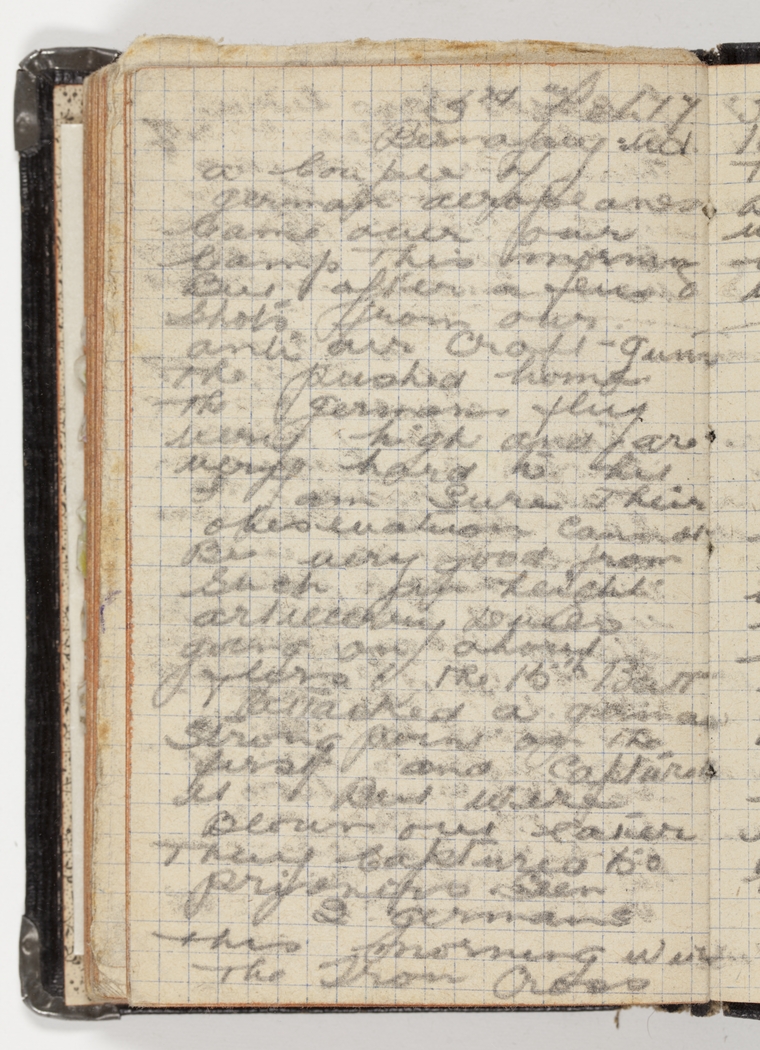 3rd Feb 17
Bernafay Wd
a couple of
german aeroplanes
Came over our
Camp this morning
But after a few
Shots from our
anti air Craft-guns
the pushed home
the germans flug
very high and are
very hard to hit
I am Sure Their
observation Cannot
Be very good from
Such height
artillery duels
going on about
flers the 15th Batt
attacked a german
Strong point on the
first and Captured
it But were
Blown out later
They Captured 50
prisoners Seen
2 germans
this morning with
the Iron Cross